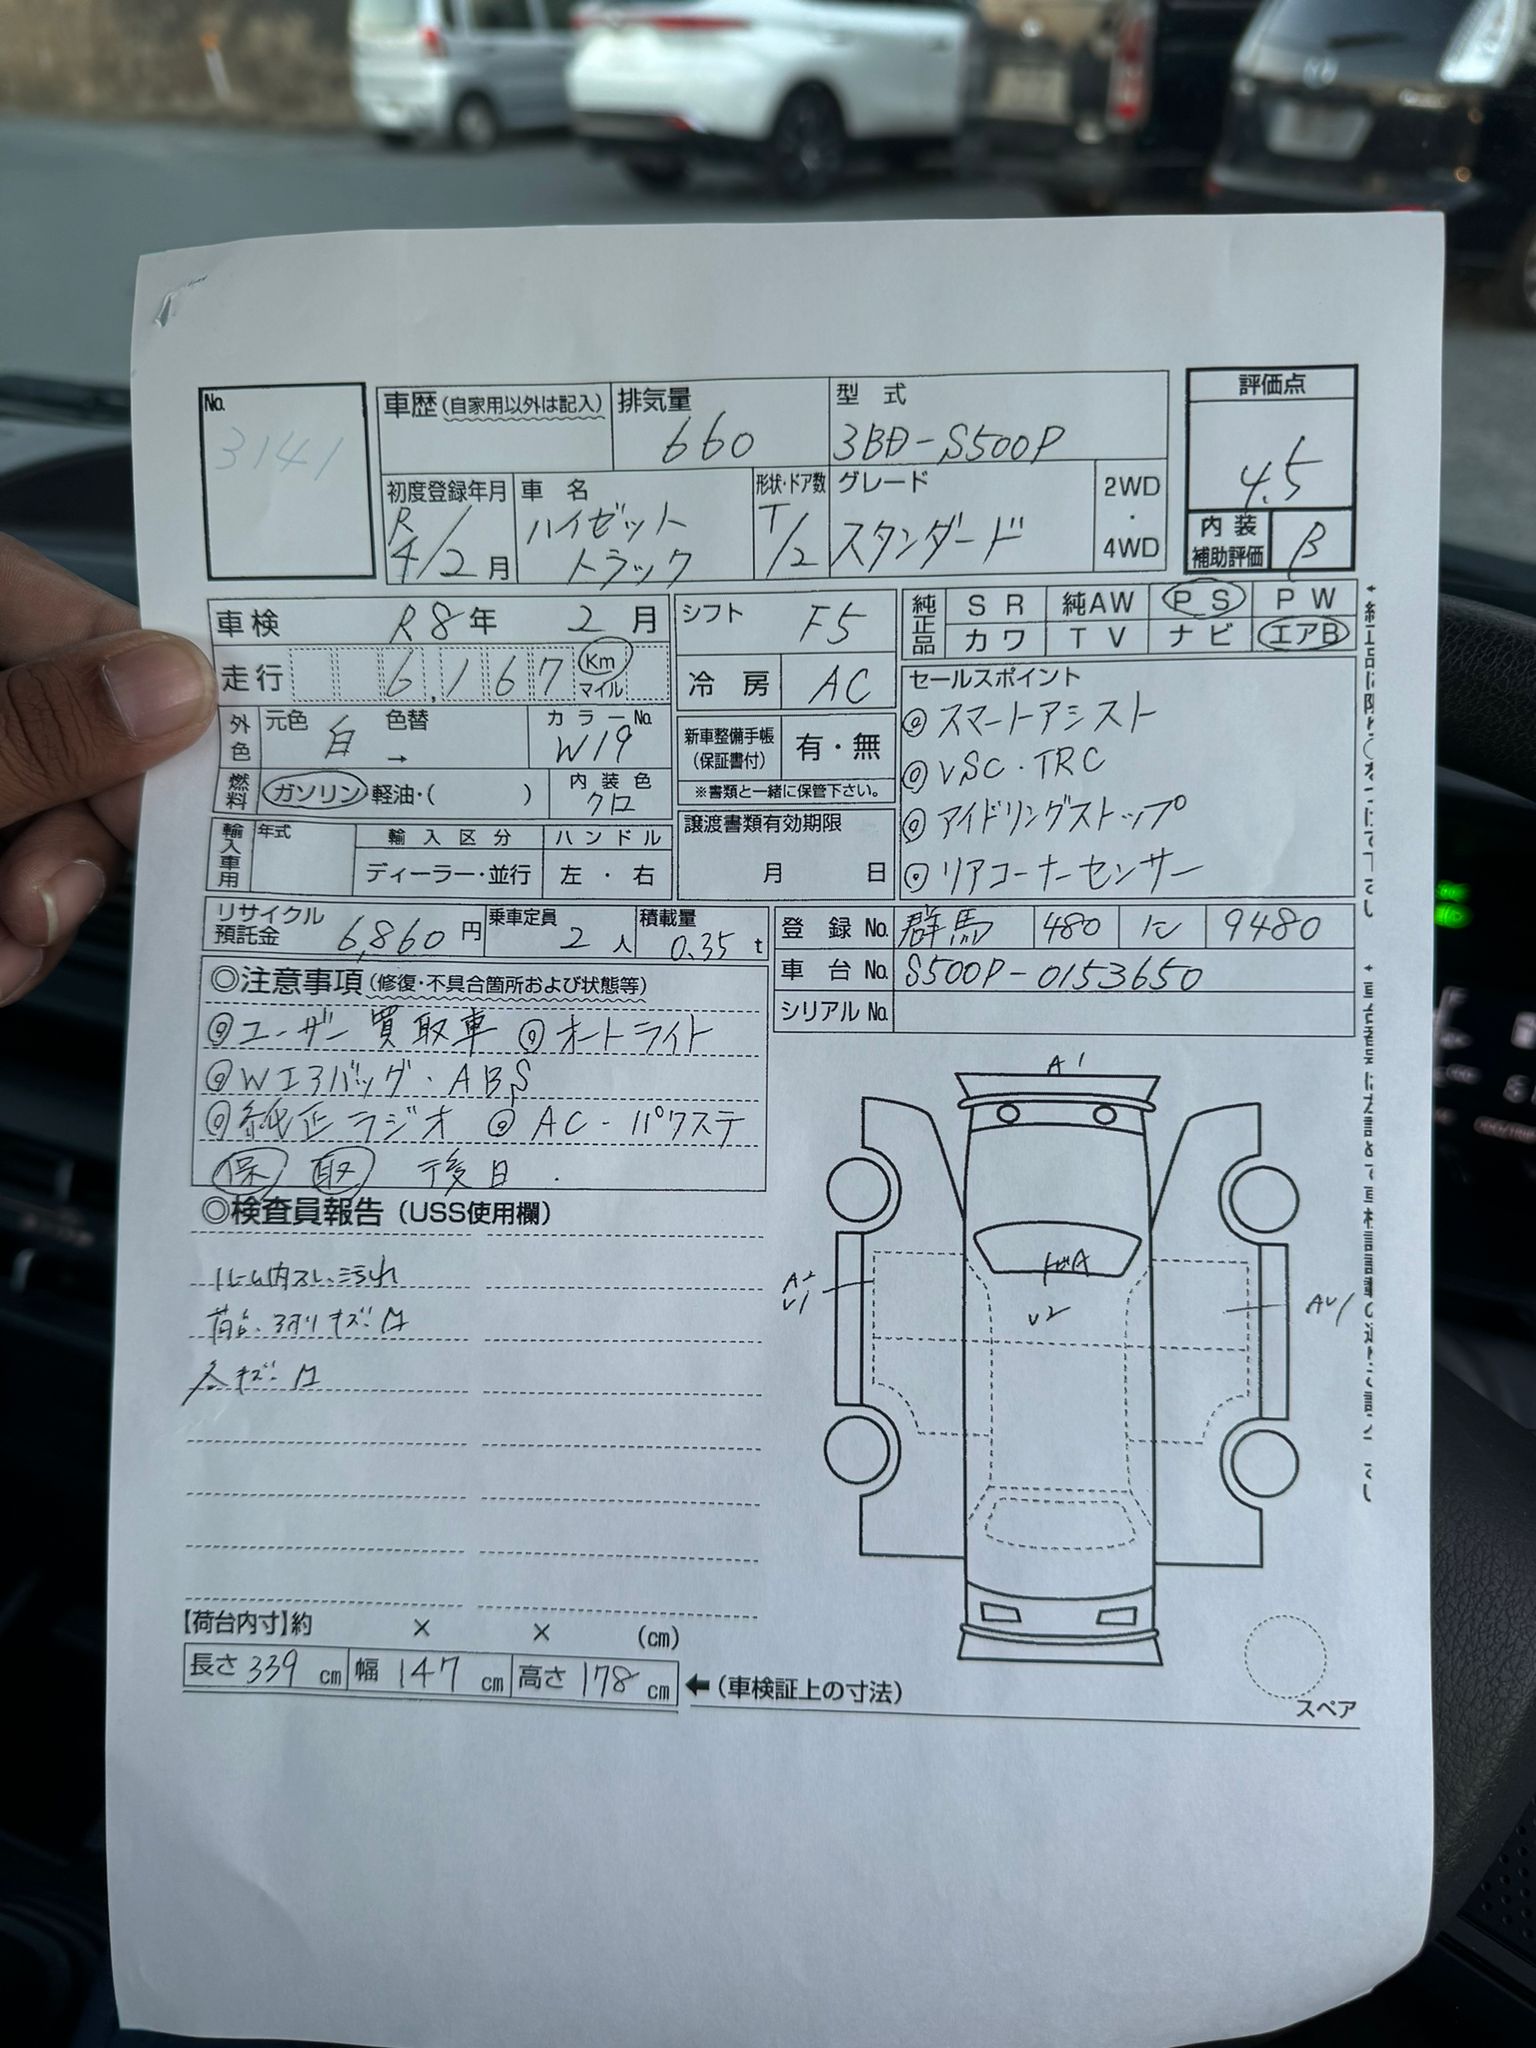 No.
3141
車歴(自家用以外は記入)
排気量
660
型式
3BD-S500P
評価点
4.5
初度登録年月
R4/2月
車名
ハイゼットトラック
形状・ドア数
T/2
グレード
スタンダード
2WD・4WD
内装補助評価
B
車検 R8年 2月
シフト F5
純正品
SR 純AW PS PW
カワ TV ナビ エアB
走行 6,167 Km マイル
冷房 AC
セールスポイント
◎スマートアシスト
◎VSC・TRC
◎アイドリングストップ
◎リアコーナーセンサー
外色 元色 白 色替 → カラーNo. W19
新車整備手帳(保証書付) 有・無
※書類と一緒に保管下さい。
燃料 ガソリン 軽油・( ) 内装色 クロ
輸入車用 年式 輸入区分 ハンドル
ディーラー・並行 左・右
譲渡書類有効期限
月 日
リサイクル預託金 6,860円 乗車定員 2人 積載量 0.35t
登録No. 群馬 480 に 9480
車台No. S500P-0153650
シリアルNo.
◎注意事項(修復・不具合箇所および状態等)
◎ユーザー買取車 ◎オートライト
◎Wエアバッグ・ABS
◎純正ラジオ ◎AC・パワステ
保 取 後日.
◎検査員報告(USS使用欄)
ルーム内スレ、汚れ
荷台
A1
A2
U1
U2
AU1
【荷台内寸】約 × × (cm)
長さ 339cm 幅 147cm 高さ 178cm ←(車検証上の寸法)
スペア